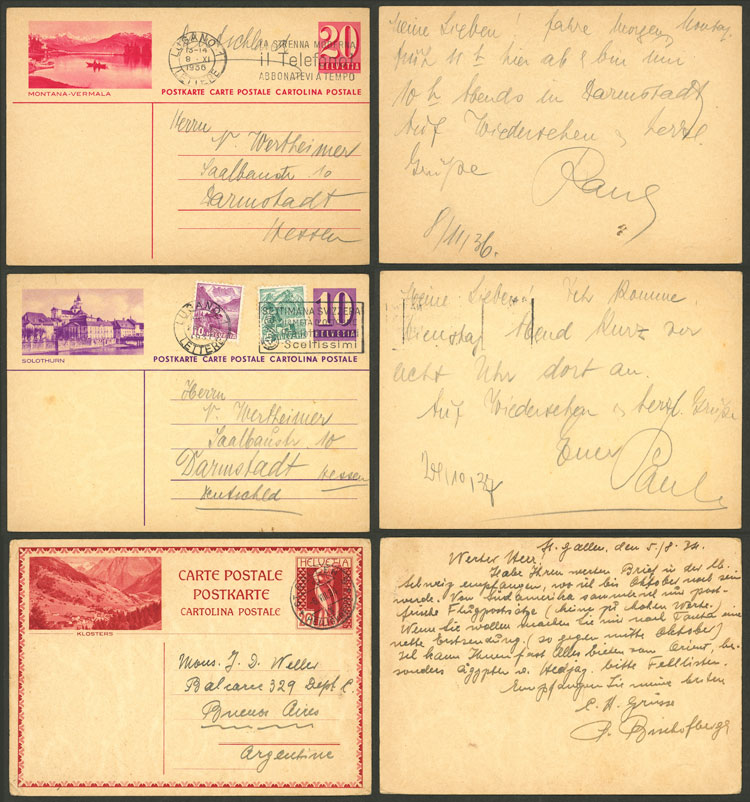 Deutschland
LUGANO 1
13-14
8·XI
1936
LETTERE
LA STRENNA MODERNA
il Telefono
ABBONATEVI A TEMPO
20
HELVETIA
MONTANA-VERMALA
POSTKARTE CARTE POSTALE CARTOLINA POSTALE
Herrn
N. Wertheimer
Saalbaustr 10
Darmstadt
Hessen
Meine Lieben! Fahre Morgen, Montag
früh 11 h hier ab & bin um
10 h Abends in Darmstadt.
Auf Wiedersehen & herzl.
Grüße
Paul
8/11/36.
LUGANO
LETTERE
10
HELVETIA
SETTIMANA SVIZZERA
Scelfissimi
10
HELVETIA
SOLOTHURN
POSTKARTE CARTE POSTALE CARTOLINA POSTALE
Herrn
N. Wertheimer
Saalbaustr. 10
Darmstadt Hessen
Deutschld
Meine Lieben! Ich komme
Dienstag Abend kurz vor
acht Uhr dort an.
Auf Wiedersehen & herzl. Grüße
Euer
Paul
HELVETIA
CARTE POSTALE
POSTKARTE
CARTOLINA POSTALE
KLOSTERS
Mons. J. D. Weller
Balcarce 329 Dept C.
Buenos Aires
Argentine
St. Gallen, den 5./8. 34.
Werter Herr,
Habe Ihren werten Brief in der
Schweiz empfangen, wo ich bis Oktober noch sein
werde. Von Südamerika sammle ich nur post-
frische Flugpostsätze (keine zu hohen Werte.
Wenn Sie wollen machen Sie mir nach eine
nette Erstsendung (so gegen mitte Oktober)
Ich kann Ihnen fast Alles bieten vom Orient, be-
sonders Ägypten & Hedjaz. bitte Fehllisten.
Empfangen Sie meine besten
Grüsse
Bischofberger